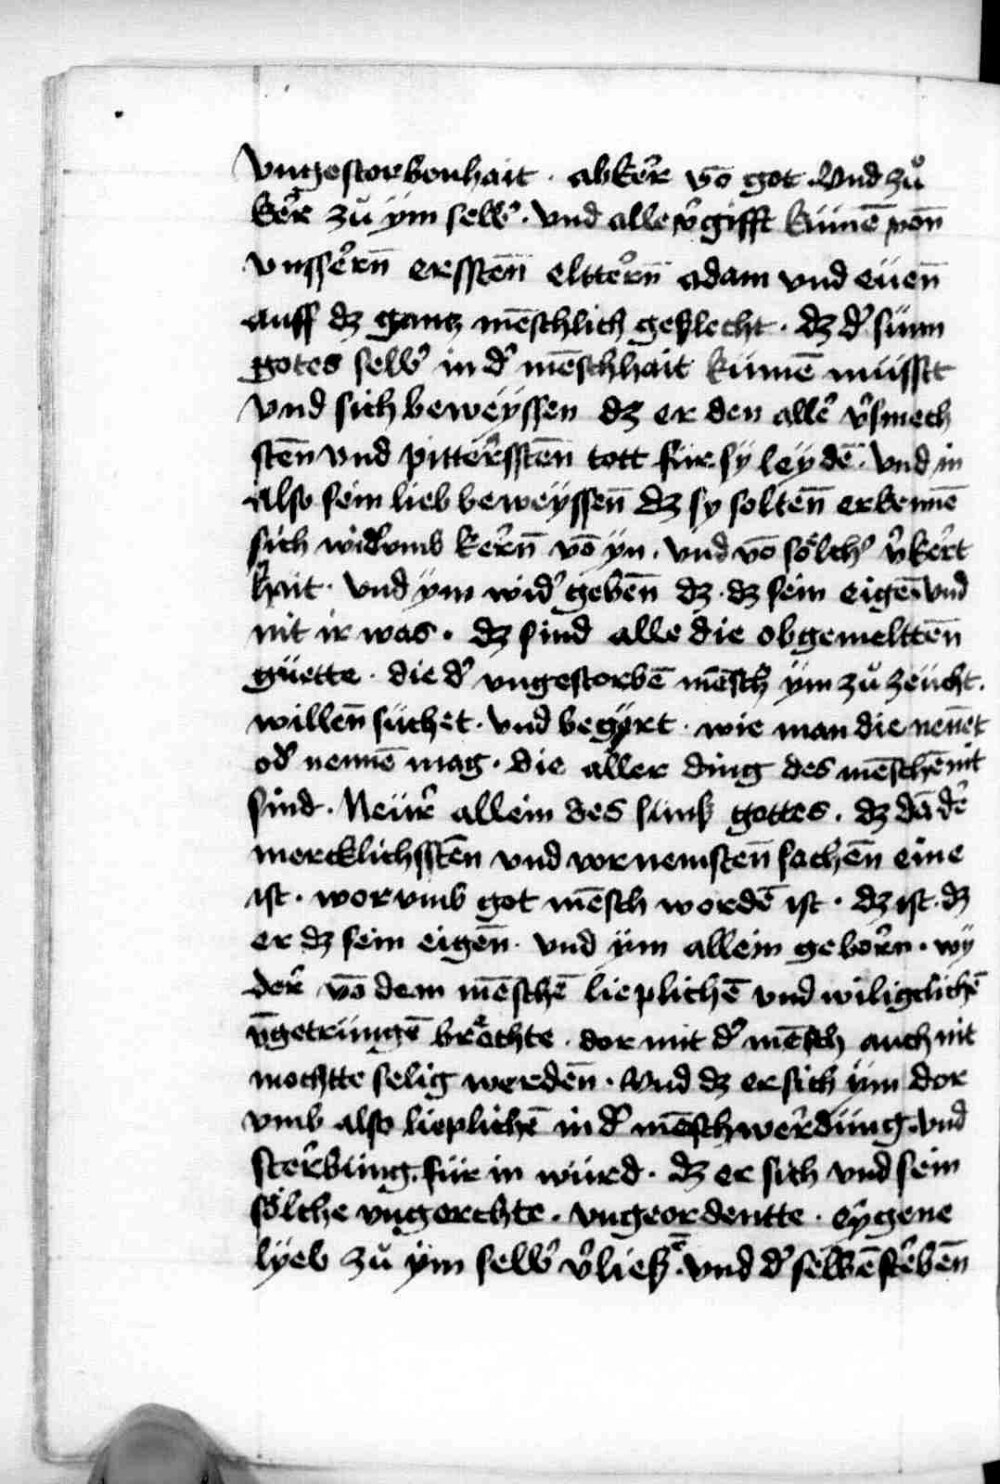 vngestorbenhait · abker̄ vō got · Vnd zů
ker̄ zů ÿm selb' · vnd alle v'gifft kümē von̄
vnsser̄n ersstēn eltter̄n adam vnd eüen̄
auff dz gantz mēschlich geslecht · dz d' sünn
gotes selb' in d' mēschhait kümē müsstt
vnd sich beweÿssen dz er den alle' v'smech
stēn vnd pitter̄sstēn tott für sÿ leÿdē · vnd in
also sein lieb beweÿssen̄ dz sy solten̄ erkennē
sich wid'vmb ker̄n̄ vō yn · vnd vō sölch' v'ker̄t
hait · vnd ÿm wid' geben̄ dz · dz sein eigē · vnd
nit ir was · dz sind alle die obgemelttēn̄
güette · die d' vngestorbē mēsch ÿm zů zeücht ·
willen̄ süchet · vnd begÿrt · wie man die nen̄et
od' nennē mag · die aller ding des mēschē nit
sind · Neür̄ allein des sunß gottes · dz dā de'
mercklichsstēn vnd vornemsten̄ sachēn eine
ist · worvmb got mēsch wordē ist · dz ist · dz
er dz sein eigēn · vnd ÿm allein gebor̄n · wÿ
der̄ vō dem mēschē lieplichē vnd wiligclichē
v̄getrüngē brächte · dor mit d' mēsch auch nit
mochtte selig werdēn · Vnd dz er sich ÿm dor
vmb also lieplichē in d' mēschwer̄düng · vnd
ster̄büng · für in würd · dz er sich vnd sein
sölche vngerchte · vngeordentte · eÿgene
lÿeb zů ÿm selb' v'ließ̄ · vnd d' selbē ster̄bēn